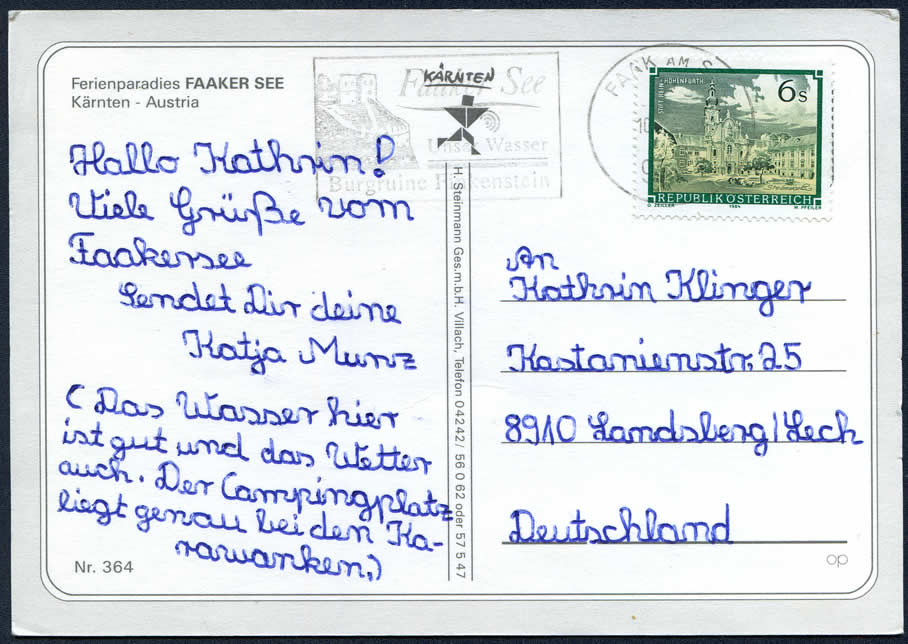 Ferienparadies FAAKER SEE
Kärnten - Austria
Hallo Kathrin!
Viele Grüße vom
Faakersee
Sendet Dir deine
Katja Munz
( Das Wasser hier
ist gut und das Wetter
auch. Der Campingplatz
liegt genau bei den Ka-
rawanken.)
Nr. 364
KÄRNTEN
Faaker See
Unser Wasser
Burgruine Finkenstein
H. Steinmann Ges.m.b.H. Villach, Telefon 0 42 42 / 56 0 62 oder 57 5 47
FAAK AM S
6 S
STIFT REIN-HOHENFURTH
REPUBLIK ÖSTERREICH
O. ZEILLER 1984 W. PFEILER
An
Kathrin Klinger
Kastanienstr. 25
8910 Landsberg/Lech
Deutschland
op